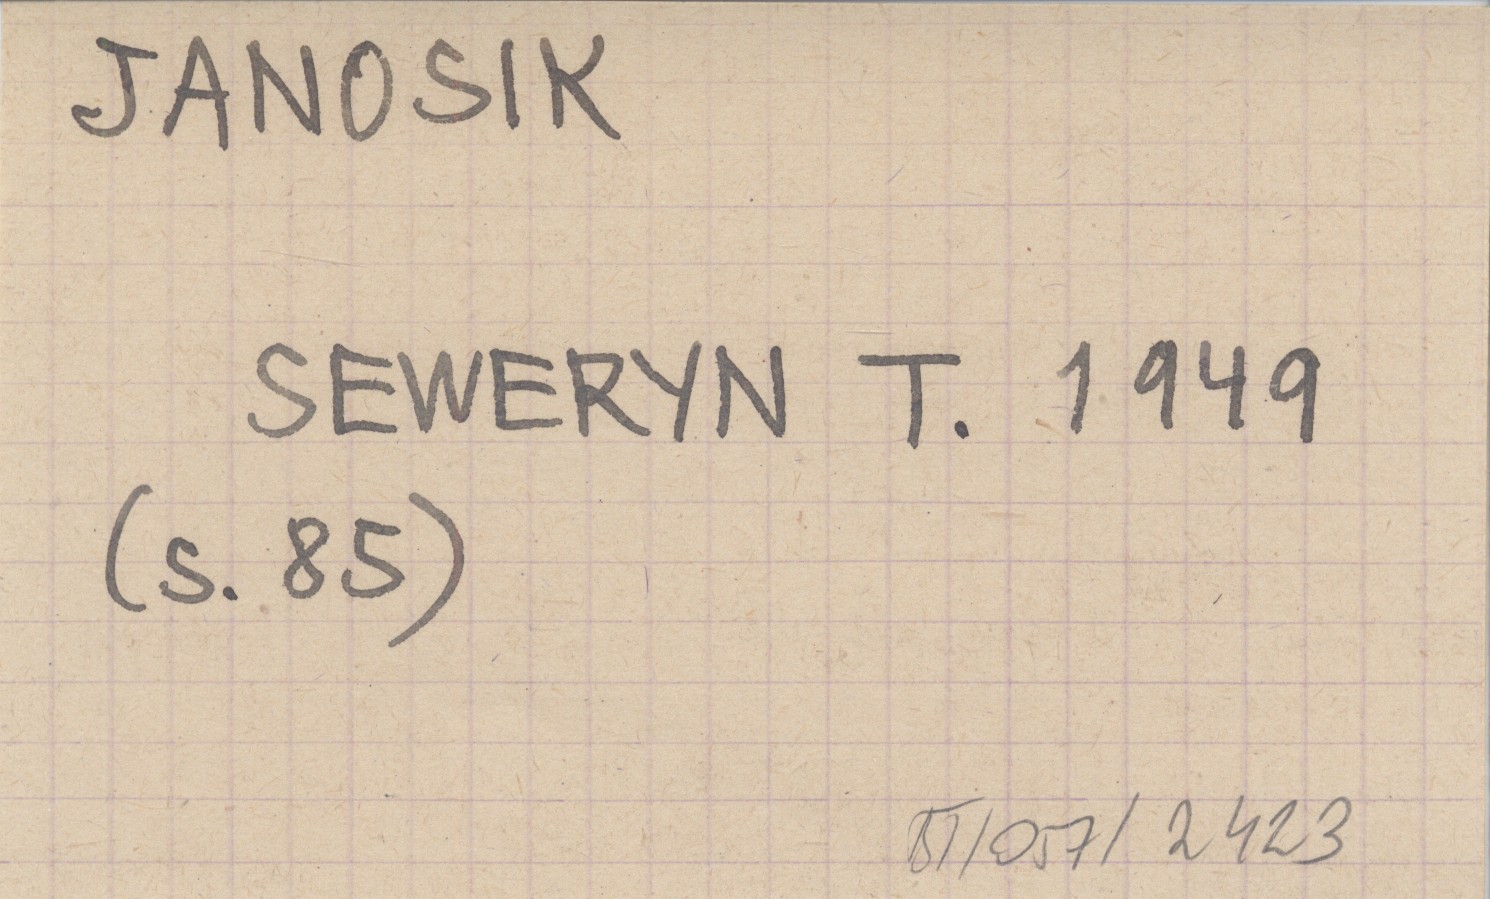 JANOSIK
SEWERYN T. 1949
(s. 85)
BT/057/2423